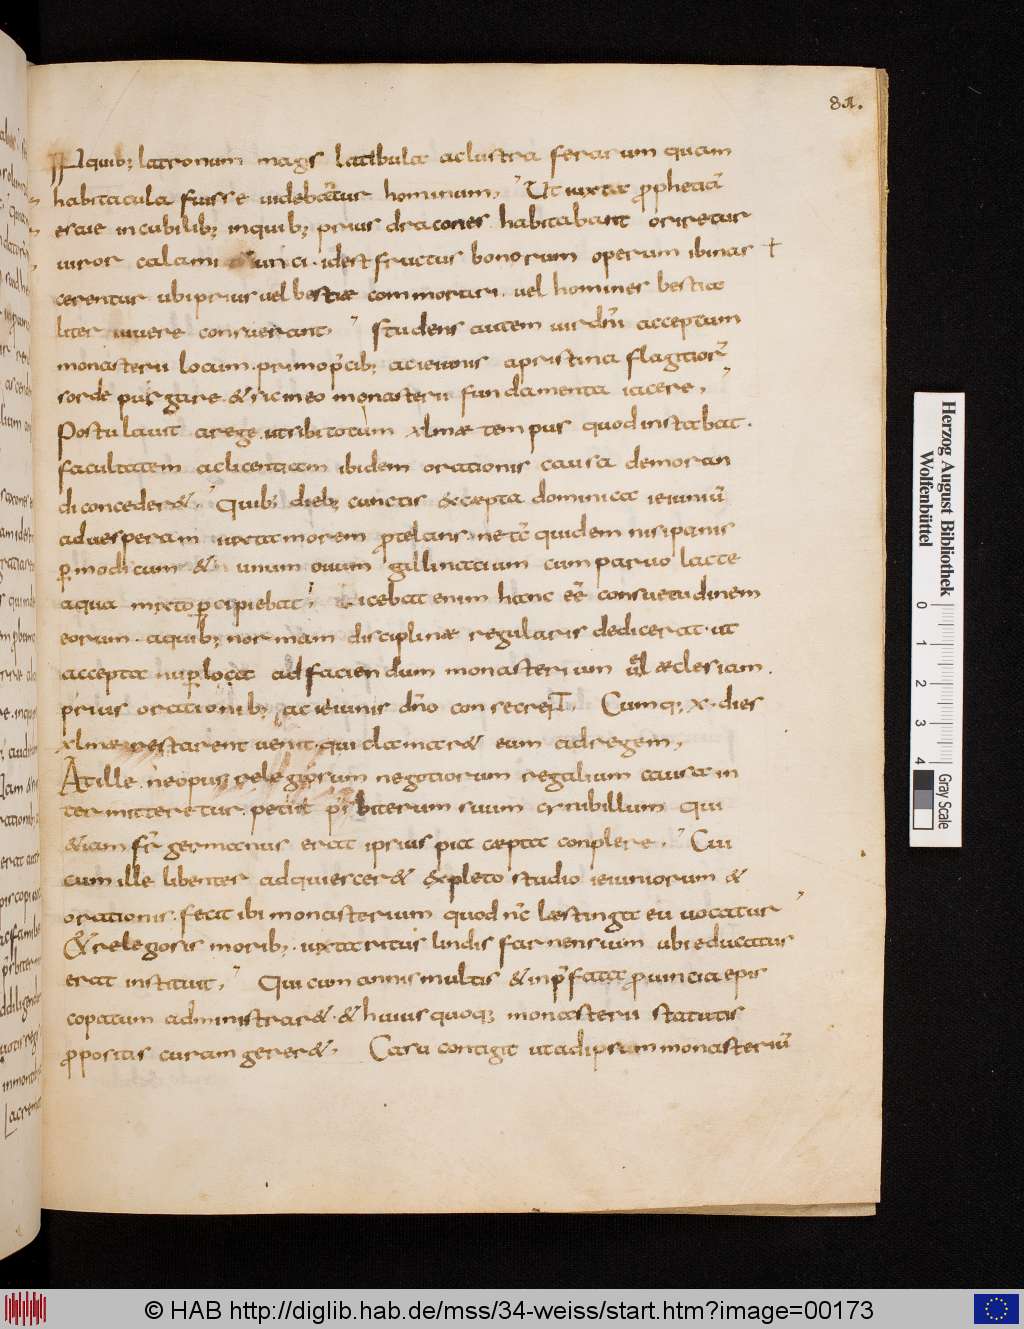 81.
INquib; latronum magis latibula aclustra ferarum quam
habitacula fuisse uidebātur hominum, Ut iuxta ꝓphetiā
esaie incubilib; inquib; prius dracones habitabant oriretur
uiror calami & iunci · idest fructus bonorum operum ibinas †
cerentur ubiprius uel bestiae commorari · uel homines bestia
liter uiuere consuerant, Studens autem uirdn̄i acceptum
monasterii locum · primop̄cib; acieiuniis apristina flagitior̄
sorde purgare · & sic ineo monasterii fundamenta iacere,
Postulauit arege utsibitotum xlmae tempus quodinstabat ·
facultatem aclicentiam ibidem orationis causa demoran
di conceder&, Quib; dieb; cunctis exccepta dominica ieiuniū
aduesperam iuxtamorem ꝓtelans · nec tc̄ quidem nisipanis
ꝑmodicum & unum ouum gillinacium cumparuo lacte
aqua mixto ꝑcipiebat, dicebat enim hanc ēē consuetudinem
eorum · aquib; normam disciplinae regularis dedicerat · ut
accepta nuꝑ loca adfaciendum monasterium ul̄ aeclesiam ·
prius orationib; ac ieiuniis dn̄o consecrent. Cumq; x · dies
xlmae restarent uenit · qui clamar& eum adregem,
Atille · neopus relegiosum negotiorum regalium causa in
termitteretur · petiit pr̄biterum suum cynibillum qui
&iam fr̄ germanus erat ipsius pia caepta conplere, Cui
cum ille libenter adquiescer& expleto studio ieiuniorum &
orationis · fecit ibi monasterium quod nc̄ laestinga eu uocatur
& relegosis morib; · iuxta ritus lindis farnensium ubi educatus
erat instituit, Qui cum annis multis & inp̄fata ꝓuincia epis
copatum administrar& · & huius quoq; monasterii statutis
ꝓpositis curam gerer&, Casu contigit ut adipsum monasteriū
Herzog August Bibliothek
Wolfenbüttel
0 1 2 3 4
Gray Scale
© HAB http://diglib.hab.de/mss/34-weiss/start.htm?image=00173